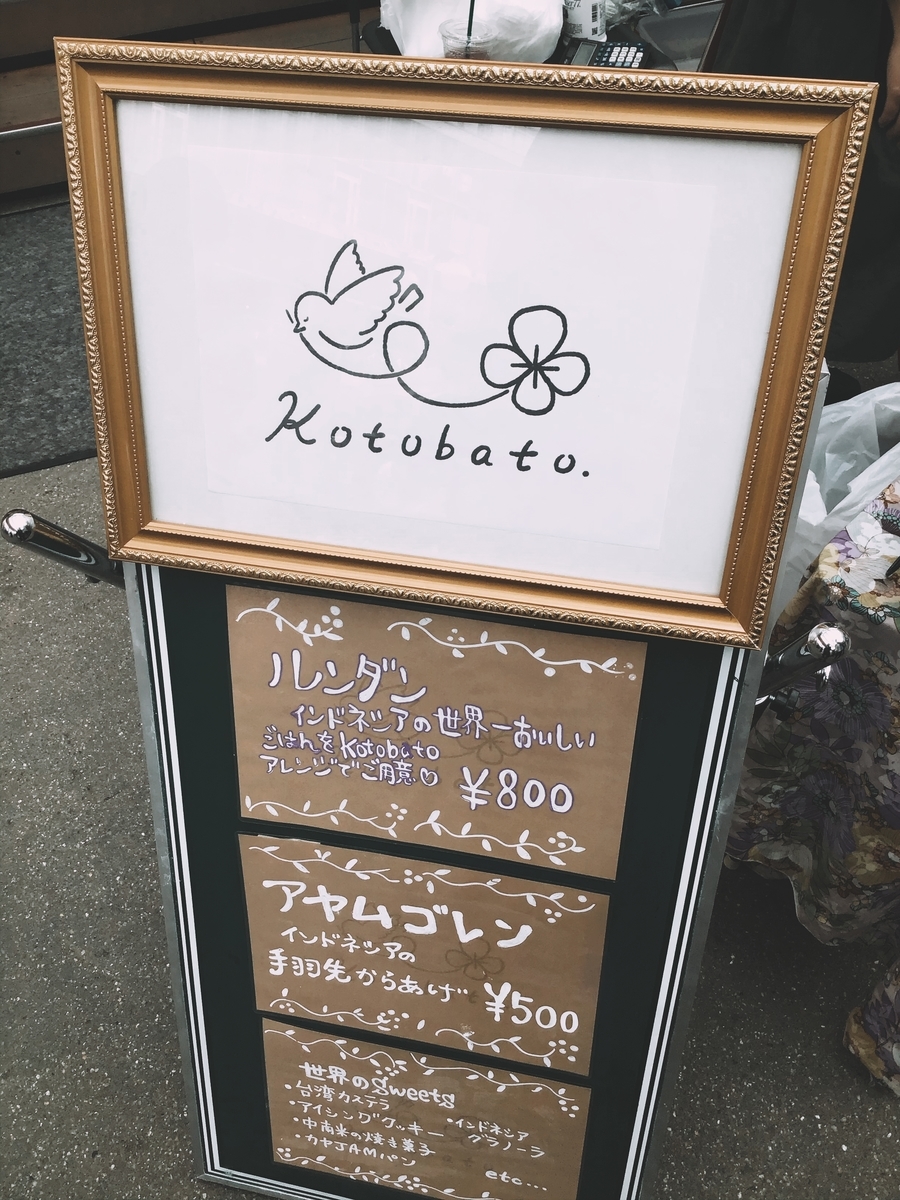 Kotobato.
ルンダン
インドネシアの世界一おいしい
ごはんをKotobato
アレンジでご用意♡
¥800
アヤムゴレン
インドネシアの
手羽先からあげ
¥500
世界のSweets
・台湾カステラ
・アイシングクッキー
・中南米の焼き菓子
・カヤJAMパン
・インドネシア
グラノーラ
etc...